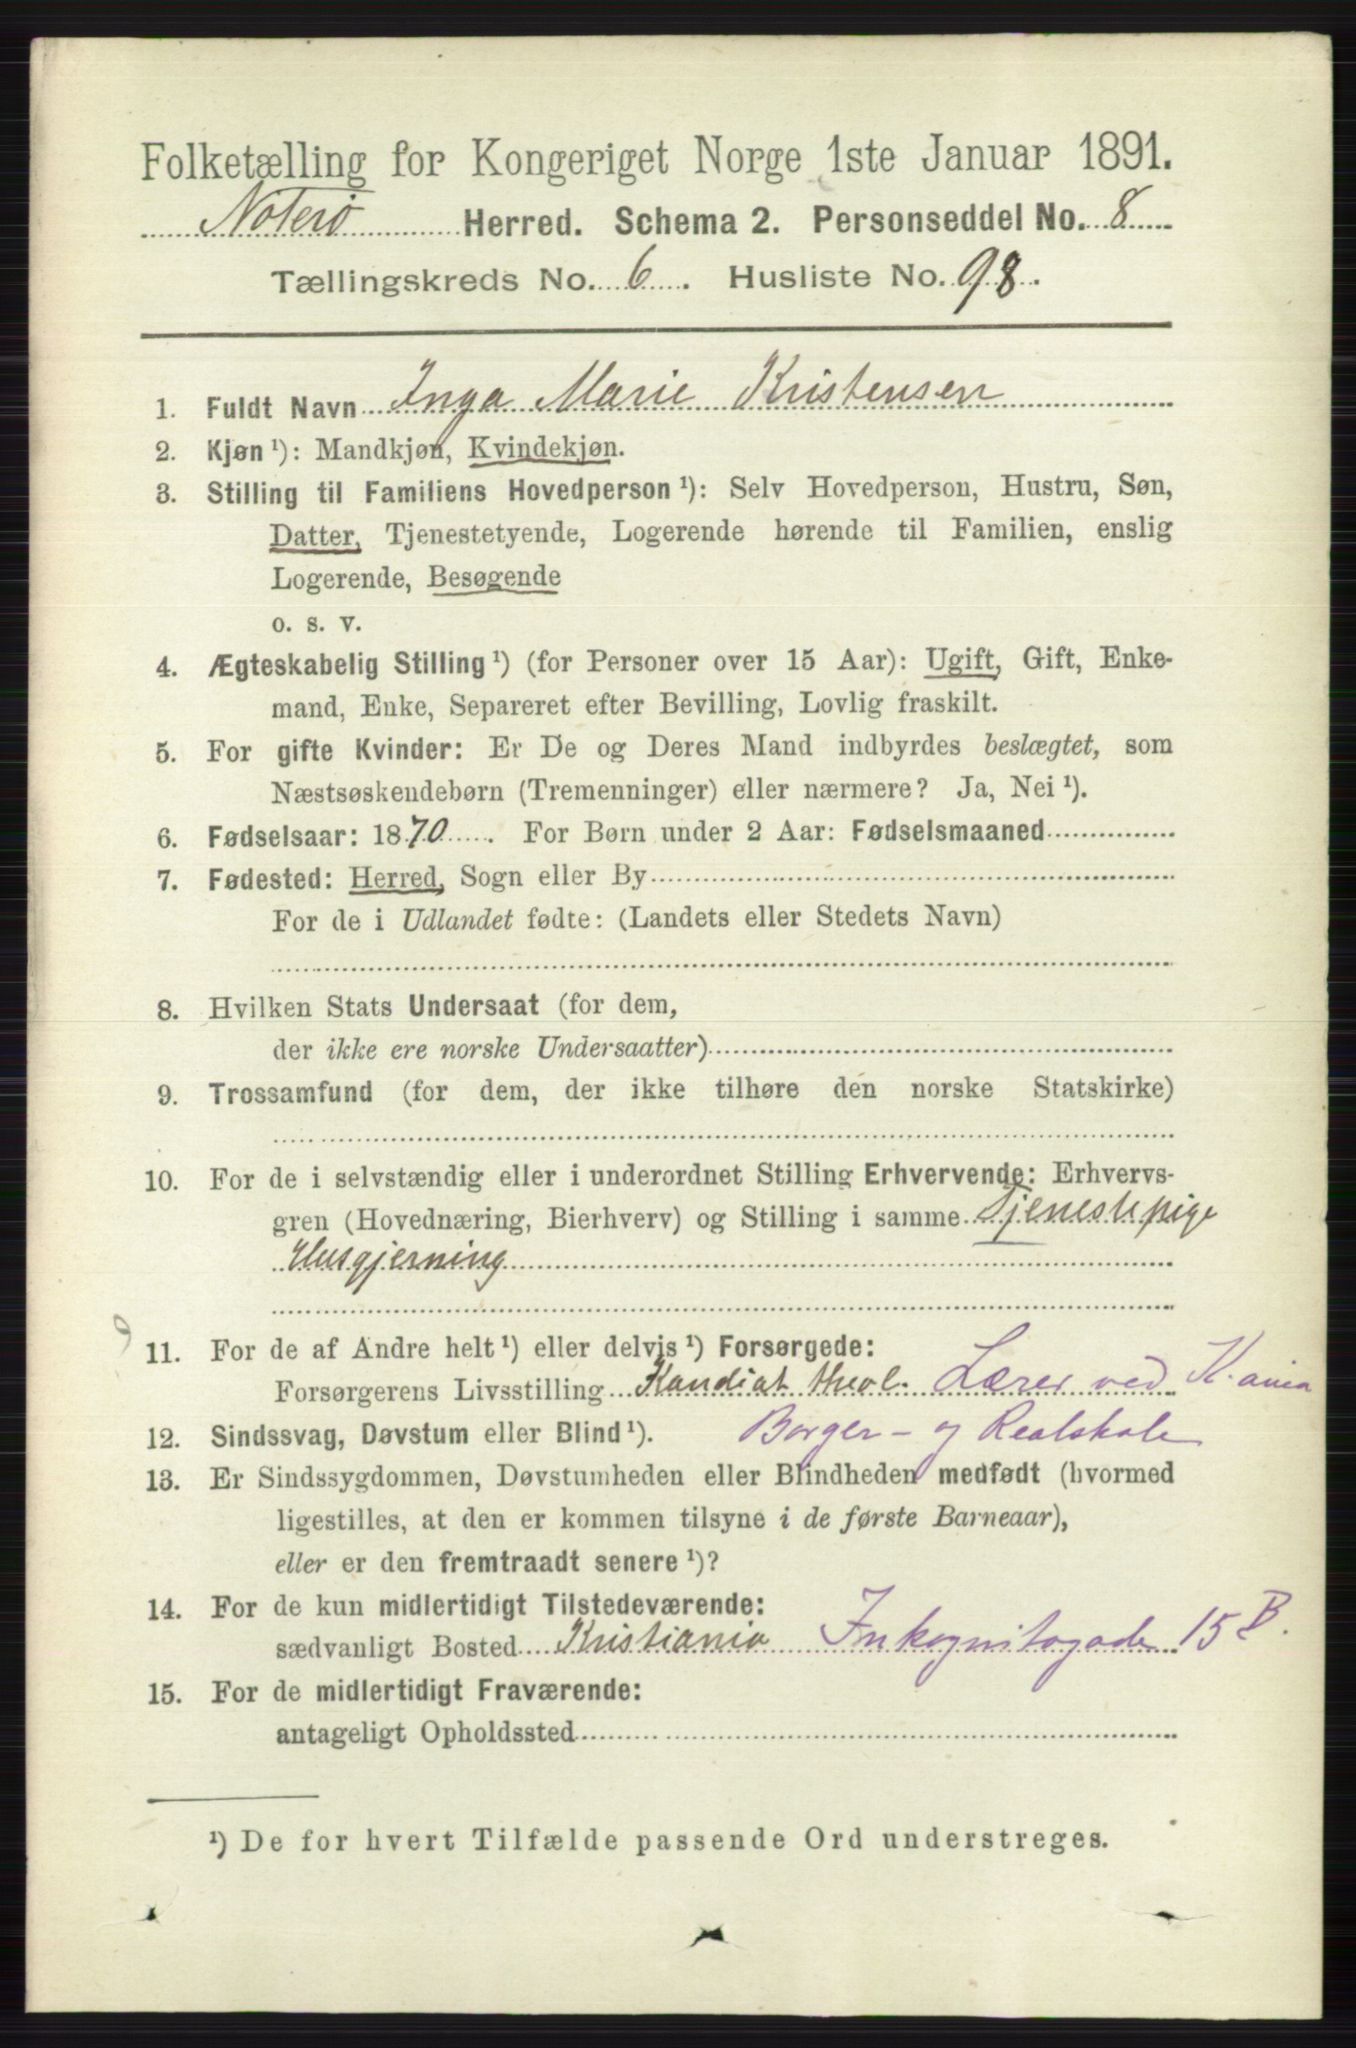 Folketælling for Kongeriget Norge 1ste Januar 1891.
Noterö Herred. Schema 2. Personseddel No. 8
Tællingskreds No. 6. Husliste No. 98.
1. Fuldt Navn Inga Marie Kristensen
2. Kjøn ¹): Mandkjøn, Kvindekjøn.
3. Stilling til Familiens Hovedperson ¹): Selv Hovedperson, Hustru, Søn,
Datter, Tjenestetyende, Logerende hørende til Familien, enslig
Logerende, Besøgende
o. s. v.
4. Ægteskabelig Stilling ¹) (for Personer over 15 Aar): Ugift, Gift, Enke-
mand, Enke, Separeret efter Bevilling, Lovlig fraskilt.
5. For gifte Kvinder: Er De og Deres Mand indbyrdes beslægtet, som
Næstsøskendebørn (Tremenninger) eller nærmere? Ja, Nei ¹).
6. Fødselsaar: 1870. For Børn under 2 Aar: Fødselsmaaned
7. Fødested: Herred, Sogn eller By
For de i Udlandet fødte: (Landets eller Stedets Navn)
8. Hvilken Stats Undersaat (for dem,
der ikke ere norske Undersaatter)
9. Trossamfund (for dem, der ikke tilhøre den norske Statskirke)
10. For de i selvstændig eller i underordnet Stilling Erhvervende: Erhvervs-
gren (Hovednæring, Bierhverv) og Stilling i samme Tjenestepige
Husgjerning
11. For de af Andre helt ¹) eller delvis ¹) Forsørgede:
Forsørgerens Livsstilling Kandiat theol. Lærer ved K.ania
12. Sindssvag, Døvstum eller Blind ¹). Borger- og Realskole
13. Er Sindssygdommen, Døvstumheden eller Blindheden medfødt (hvormed
ligestilles, at den er kommen tilsyne i de første Barneaar),
eller er den fremtraadt senere ¹)?
14. For de kun midlertidigt Tilstedeværende:
sædvanligt Bosted Kristiania Inkognitogade 15 B.
15. For de midlertidigt Fraværende:
antageligt Opholdssted
¹) De for hvert Tilfælde passende Ord understreges.